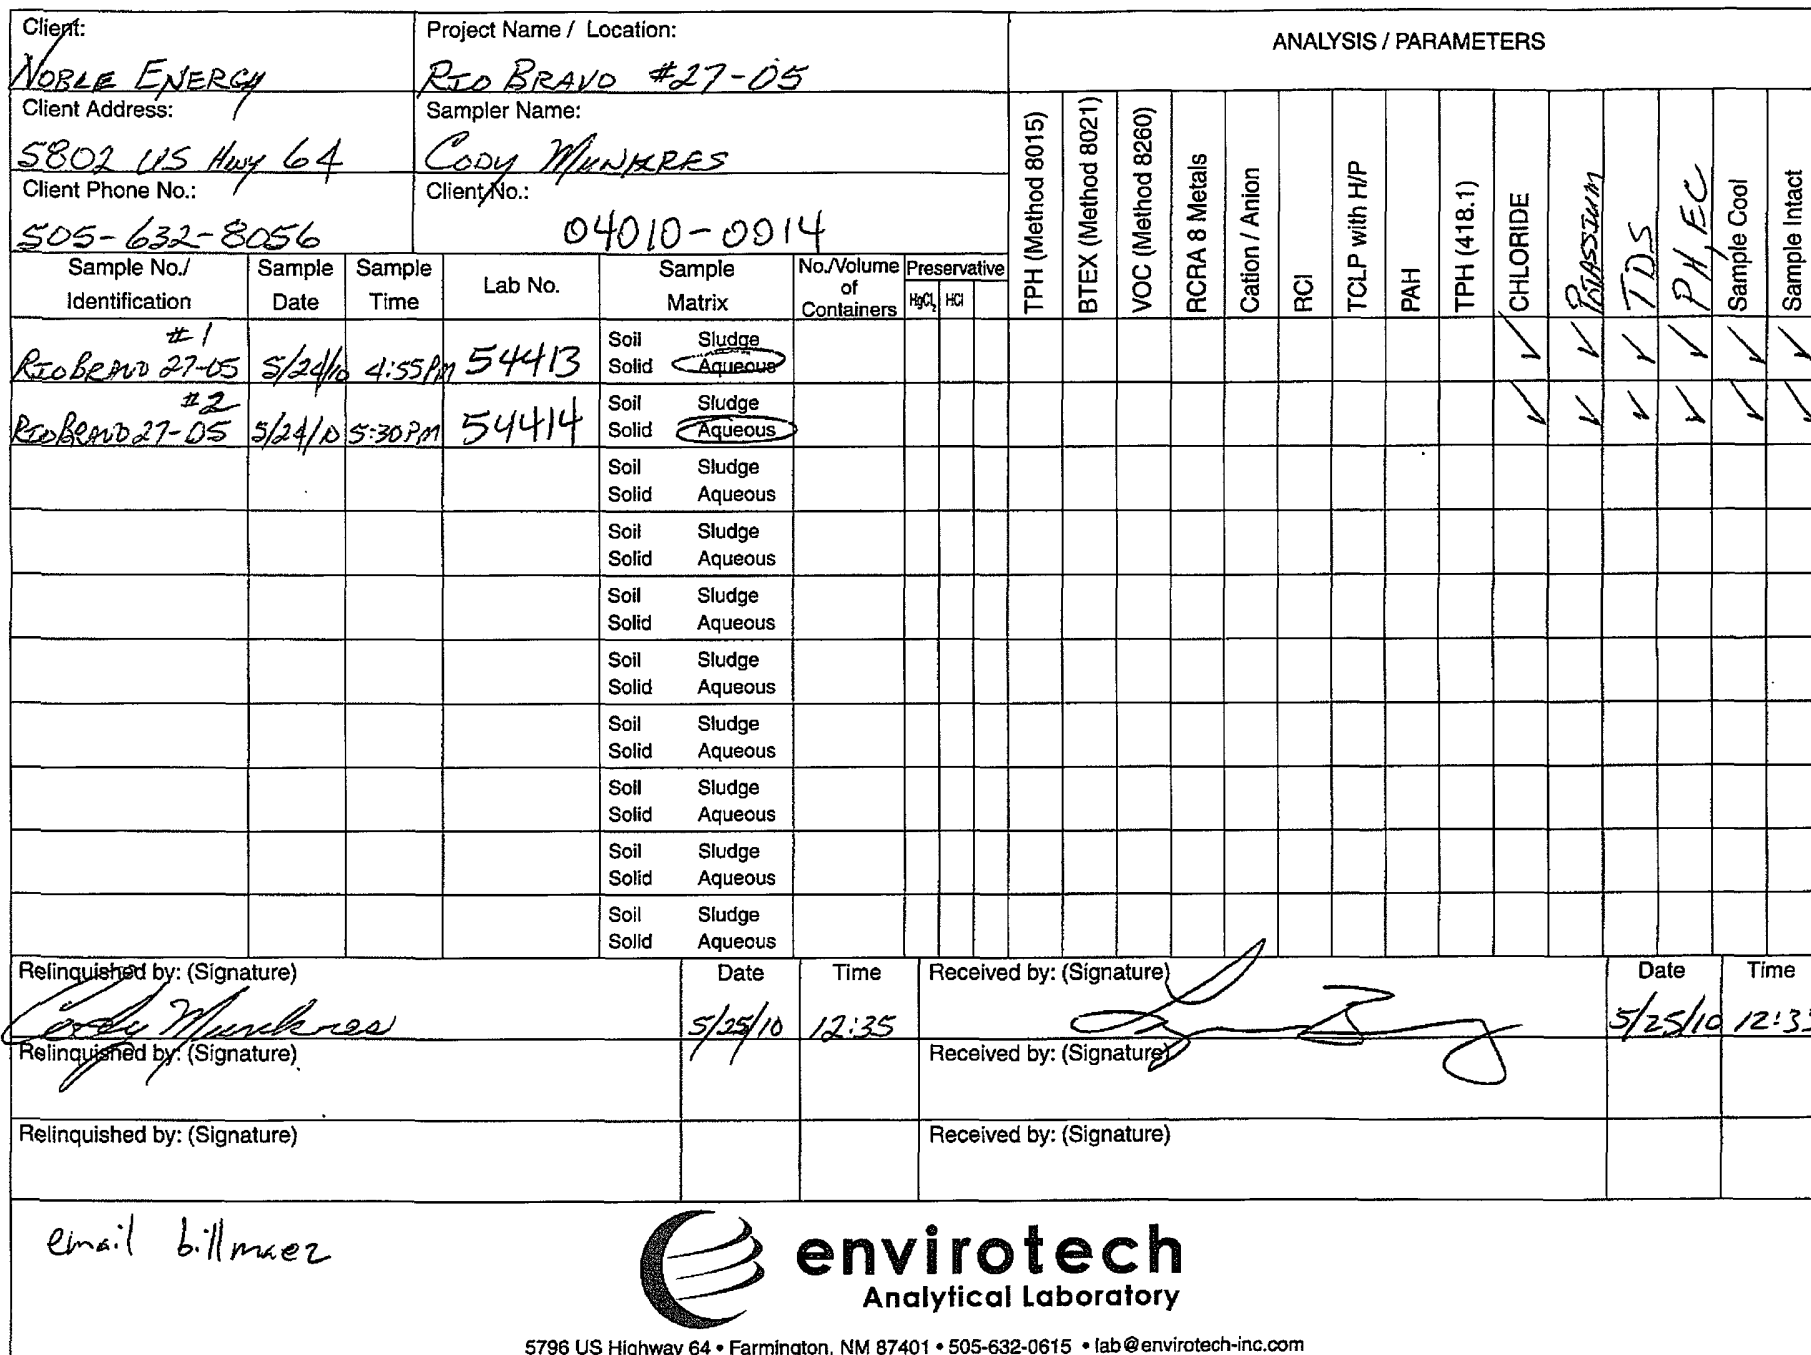 Client:
NOBLE ENERGY
Project Name / Location:
RIO BRAVO #27-05
ANALYSIS / PARAMETERS
Client Address:
5802 US Hwy 64
Sampler Name:
CODY MUNKRES
Client Phone No.:
505-632-8056
Client No.:
04010-0014
Sample No./ Identification
Sample Date
Sample Time
Lab No.
Sample Matrix
No./Volume of Containers
Preservative
HgCl2
HCl
TPH (Method 8015)
BTEX (Method 8021)
VOC (Method 8260)
RCRA 8 Metals
Cation / Anion
RCI
TCLP with H/P
PAH
TPH (418.1)
CHLORIDE
POTASSIUM
TDS
PH, EC
Sample Cool
Sample Intact
#1
RIO BRAVO 27-05 5/24/10 4:55PM 54413
Soil Sludge
Solid Aqueous
✓ ✓ ✓ ✓ ✓ ✓
#2
RIO BRAVO 27-05 5/24/10 5:30PM 54414
Soil Sludge
Solid Aqueous
✓ ✓ ✓ ✓ ✓ ✓
Soil Sludge
Solid Aqueous
Soil Sludge
Solid Aqueous
Soil Sludge
Solid Aqueous
Soil Sludge
Solid Aqueous
Soil Sludge
Solid Aqueous
Soil Sludge
Solid Aqueous
Soil Sludge
Solid Aqueous
Soil Sludge
Solid Aqueous
Relinquished by: (Signature) Date Time Received by: (Signature) Date Time
Cody Munkres 5/25/10 12:35 5/25/10
Relinquished by: (Signature) Received by: (Signature)
Relinquished by: (Signature) Received by: (Signature)
email bill
envirotech
Analytical Laboratory
5796 US Highway 64 • Farmington, NM 87401 • 505-632-0615 • lab@envirotech-inc.com